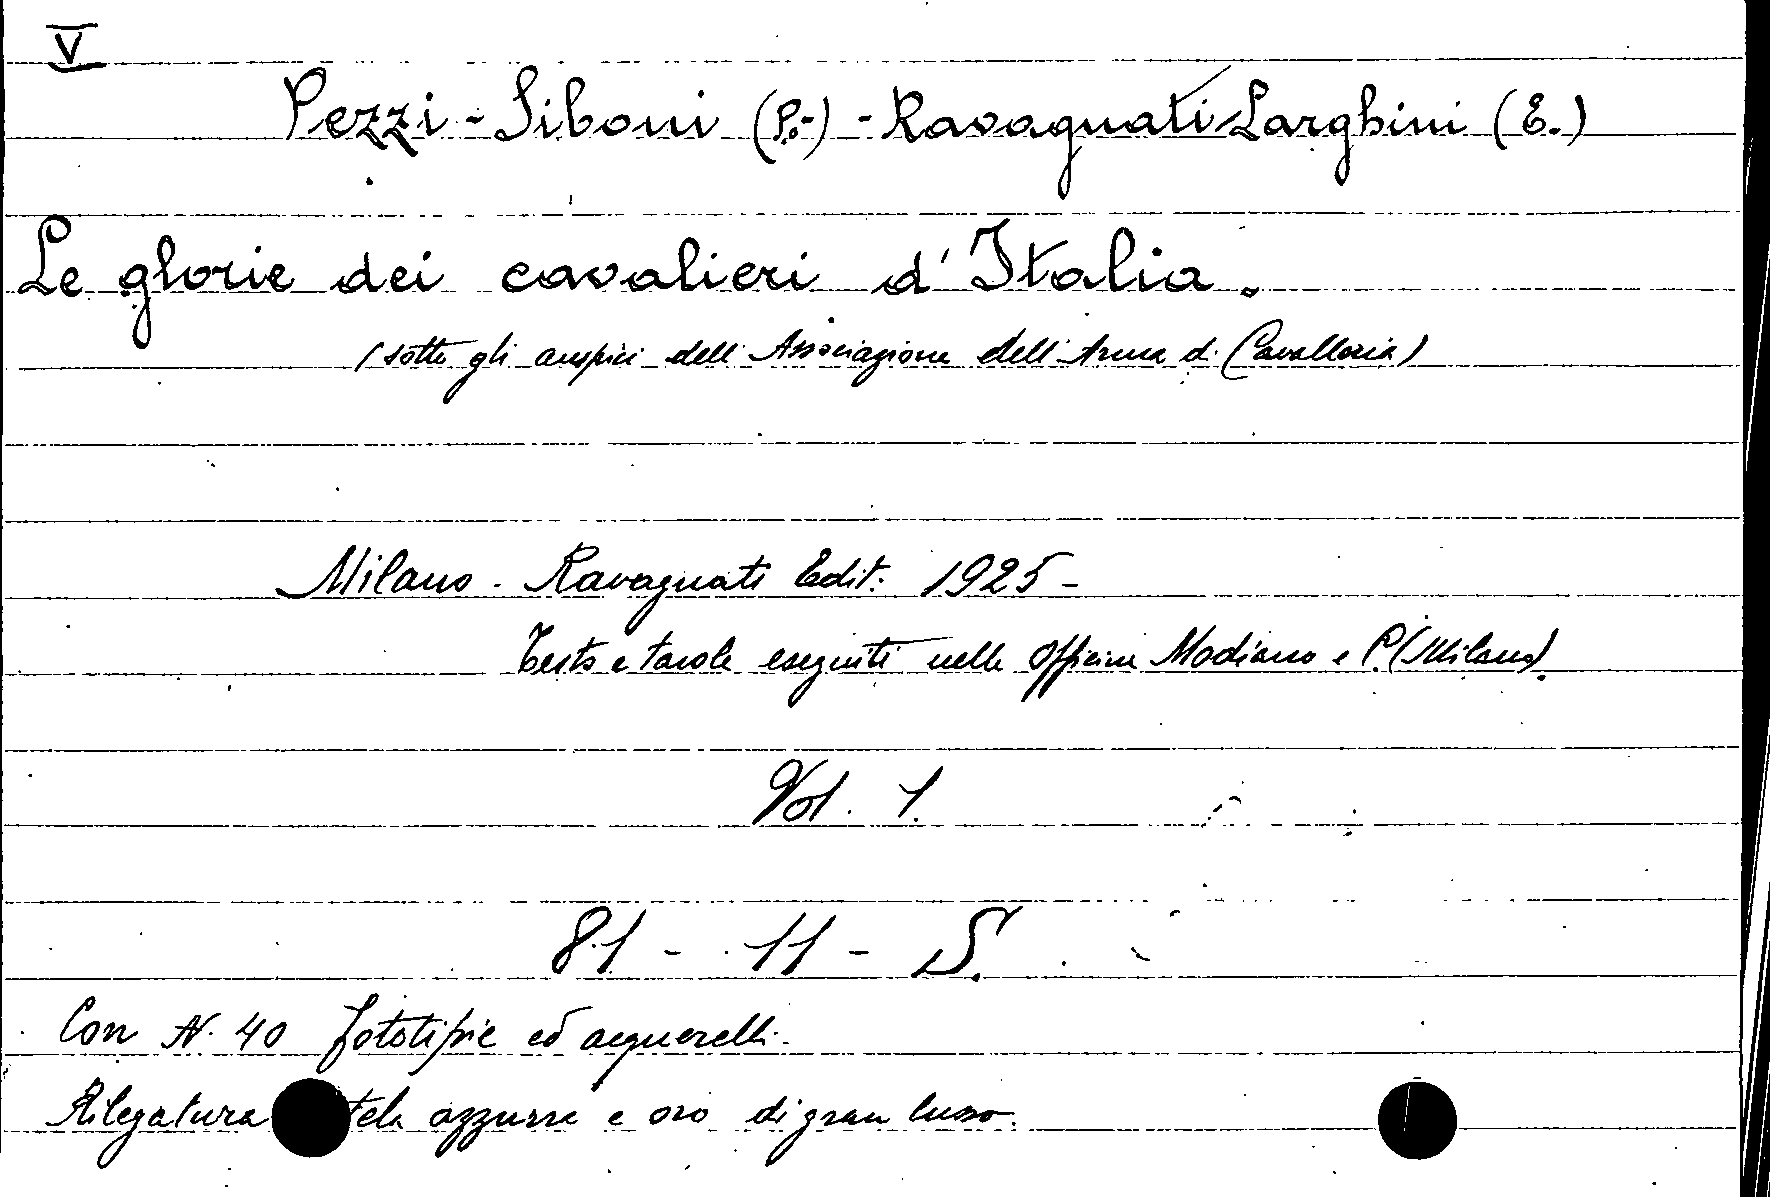 V
Pezzi-Siboni (P.-) - Ravagnati Larghini (E.)
Le glorie dei cavalieri d'Italia.
(sotto gli auspici dell'Associazione dell'Arma di Cavalleria)
Milano - Ravagnati Edit: 1925 -
Testo e tavole eseguiti nelle Officine Modiano e C. (Milano).
Vol. 1.
81 - 11 - S.
Con N. 40 fototipie ed acquerelli.
Rilegatura tela azzurra e oro di gran lusso.